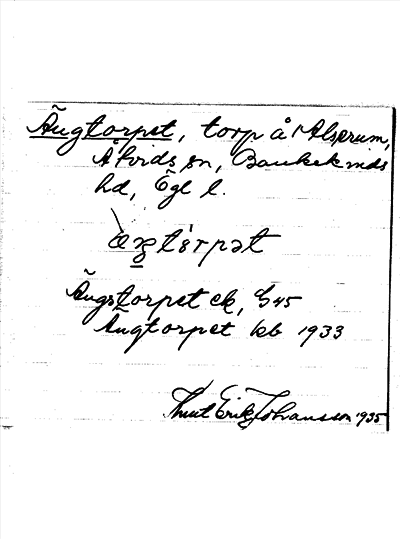 Ängtorpet, torp å Alserum,
Åtvids sn, Bankekinds
hd, Ögl l.
Ängstorpet ek, G 45
Ängtorpet kb 1933
Knut Erik Johansson 1935